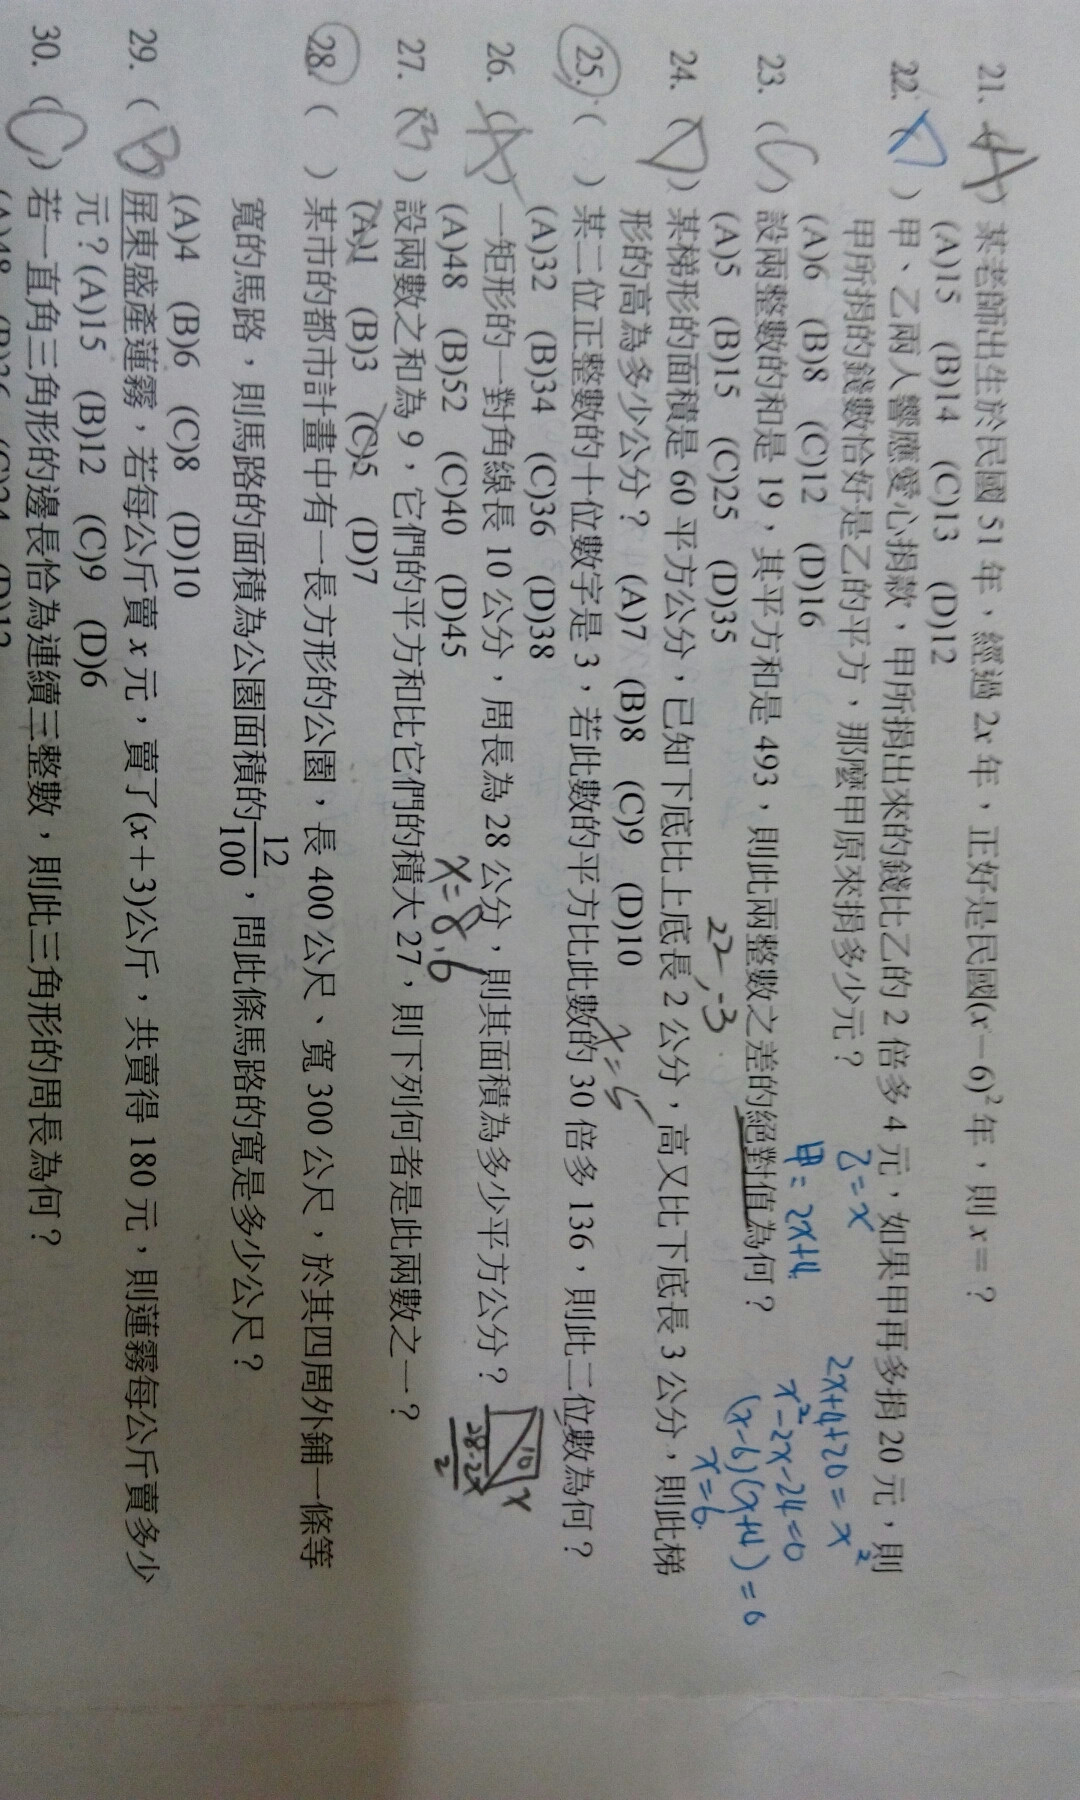 21. (A) 某老師出生於民國 51 年，經過 2x 年，正好是民國(x－6)²年，則 x＝？
(A)15 (B)14 (C)13 (D)12
22. (D) 甲、乙兩人響應愛心捐款，甲所捐出來的錢比乙的 2 倍多 4 元，如果甲再多捐 20 元，則
甲所捐的錢數恰好是乙的平方，那麼甲原來捐多少元？
(A)6 (B)8 (C)12 (D)16
乙=x
甲=2x+4
2x+4+20=x²
x²-2x-24=0
(x-6)(x+4)=0
x=6.
23. (C) 設兩整數的和是 19，其平方和是 493，則此兩整數之差的絕對值為何？
(A)5 (B)15 (C)25 (D)35
22, -3
24. (D) 某梯形的面積是 60 平方公分，已知下底比上底長 2 公分，高又比下底長 3 公分，則此梯
形的高為多少公分？ (A)7 (B)8 (C)9 (D)10
x=5
25. ( ) 某二位正整數的十位數字是 3，若此數的平方比此數的 30 倍多 136，則此二位數為何？
(A)32 (B)34 (C)36 (D)38
26. (A) 一矩形的一對角線長 10 公分，周長為 28 公分，則其面積為多少平方公分？
(A)48 (B)52 (C)40 (D)45
x=8.6
10
x
28-2x
2
27. (B) 設兩數之和為 9，它們的平方和比它們的積大 27，則下列何者是此兩數之一？
(A)1 (B)3 (C)5 (D)7
28. ( ) 某市的都市計畫中有一長方形的公園，長 400 公尺、寬 300 公尺，於其四周外鋪一條等
寬的馬路，則馬路的面積為公園面積的12/100，問此條馬路的寬是多少公尺？
(A)4 (B)6 (C)8 (D)10
29. (B) 屏東盛產蓮霧，若每公斤賣 x 元，賣了(x＋3)公斤，共賣得 180 元，則蓮霧每公斤賣多少
元？(A)15 (B)12 (C)9 (D)6
30. (C) 若一直角三角形的邊長恰為連續三整數，則此三角形的周長為何？